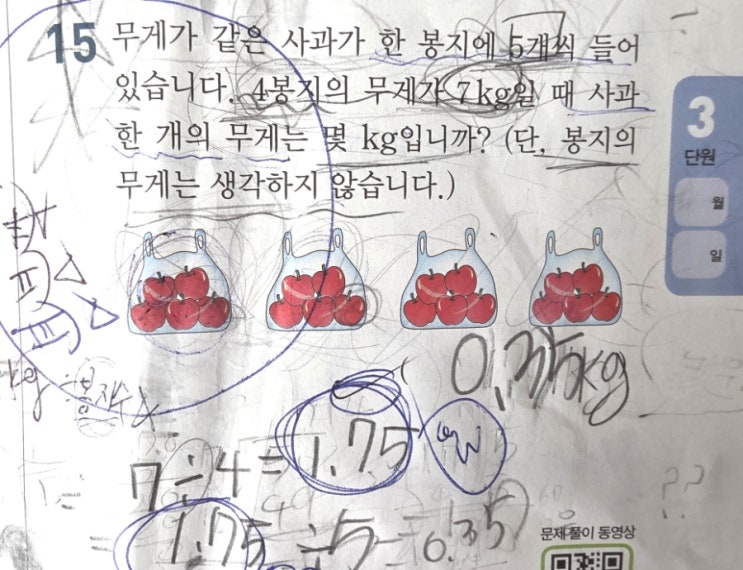 15 무게가 같은 사과가 한 봉지에 5개씩 들어
있습니다. 4봉지의 무게가 7 kg일 때 사과
한 개의 무게는 몇 kg입니까? (단, 봉지의
무게는 생각하지 않습니다.)
3
단원
월
일
0.35kg
7÷4=1.75
1.75÷5=0.35
??
문제 풀이 동영상